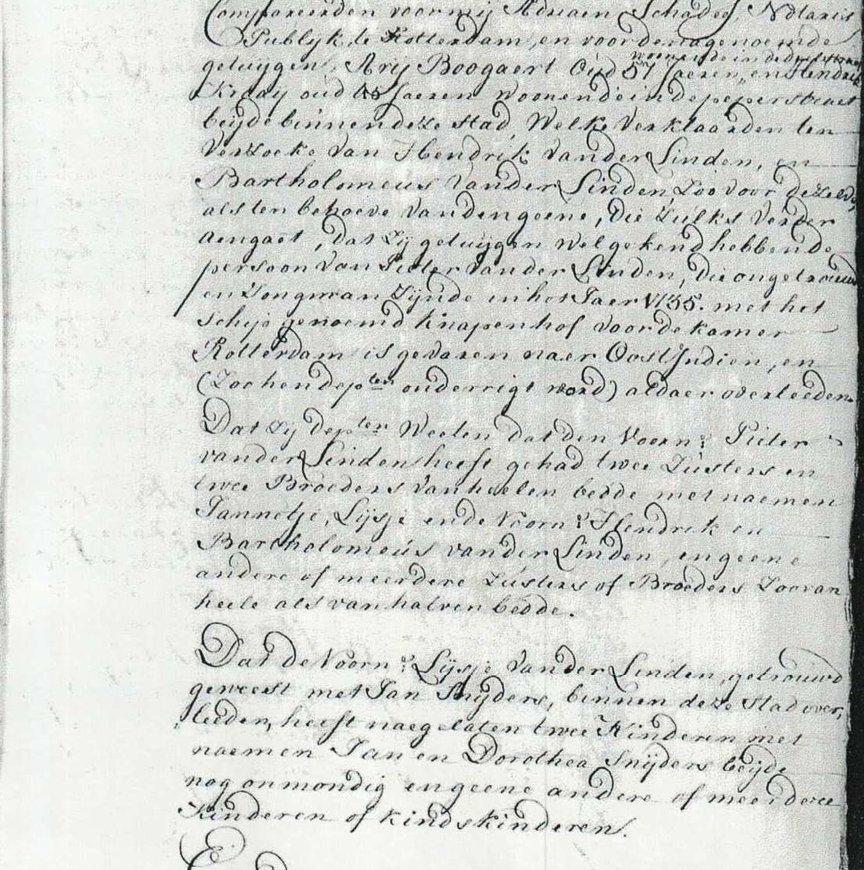 Compareerden voor mij Adriaen Schadee, Notaris
Publyk, te Rotterdam, en voor de nagenoemde
getuygen, Ary Boogaert oud 57 Jaeren, en Hendrik
woonende in de
Kraay oud 45 Jaeren woonende in de peperstraet
beijde binnen deze stad, Welke verklaarden ten
Verzoeke van Hendrik van der Linden, en
Bartholomeus van der Linden zoo voor dezelve,
als ten behoeve van den geene, die zulks verder
aengaet, dat zij getuygen wel gekend hebben de
persoon van Pieter van der Linden, die ongetrouwd
en Jongman zijnde in het Jaer 1735. met het
schip genoemd Knapenhof voor de kamer
Rotterdam is gevaren naer Oost Indien, en
(zoo hen dep:ten onderrigt word) aldaer overleeden.
Dat zy dep:ten Weeten dat den Voorn: Pieter
van der Linden heeft gehad twee Zusters en
twee Broeders van heelen bedde met naemen
Jannetje, Lijsje en de Voorn: Hendrik en
Bartholomeus van der Linden, en geene
andere of meerdere Zusters of Broeders zoo van
heele als van halven bedde.
Dat de Voorn: Lijsje van der Linden, getrouwd
geweest met Jan Snyders, binnen deze Stad over,
leeden, heeft naegelaten twee Kinderen met
naemen Jan en Dorothea Snijders beijde
nog onmondig en geene andere of meerdere
Kinderen of kindskinderen.